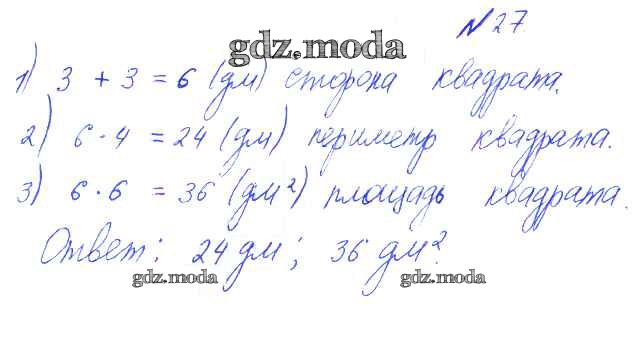 №27
gdz.moda
1) 3 + 3 = 6 (дм) сторона квадрата.
2) 6 · 4 = 24 (дм) периметр квадрата.
3) 6 · 6 = 36 (дм²) площадь квадрата.
Ответ: 24 дм; 36 дм².
gdz.moda gdz.moda